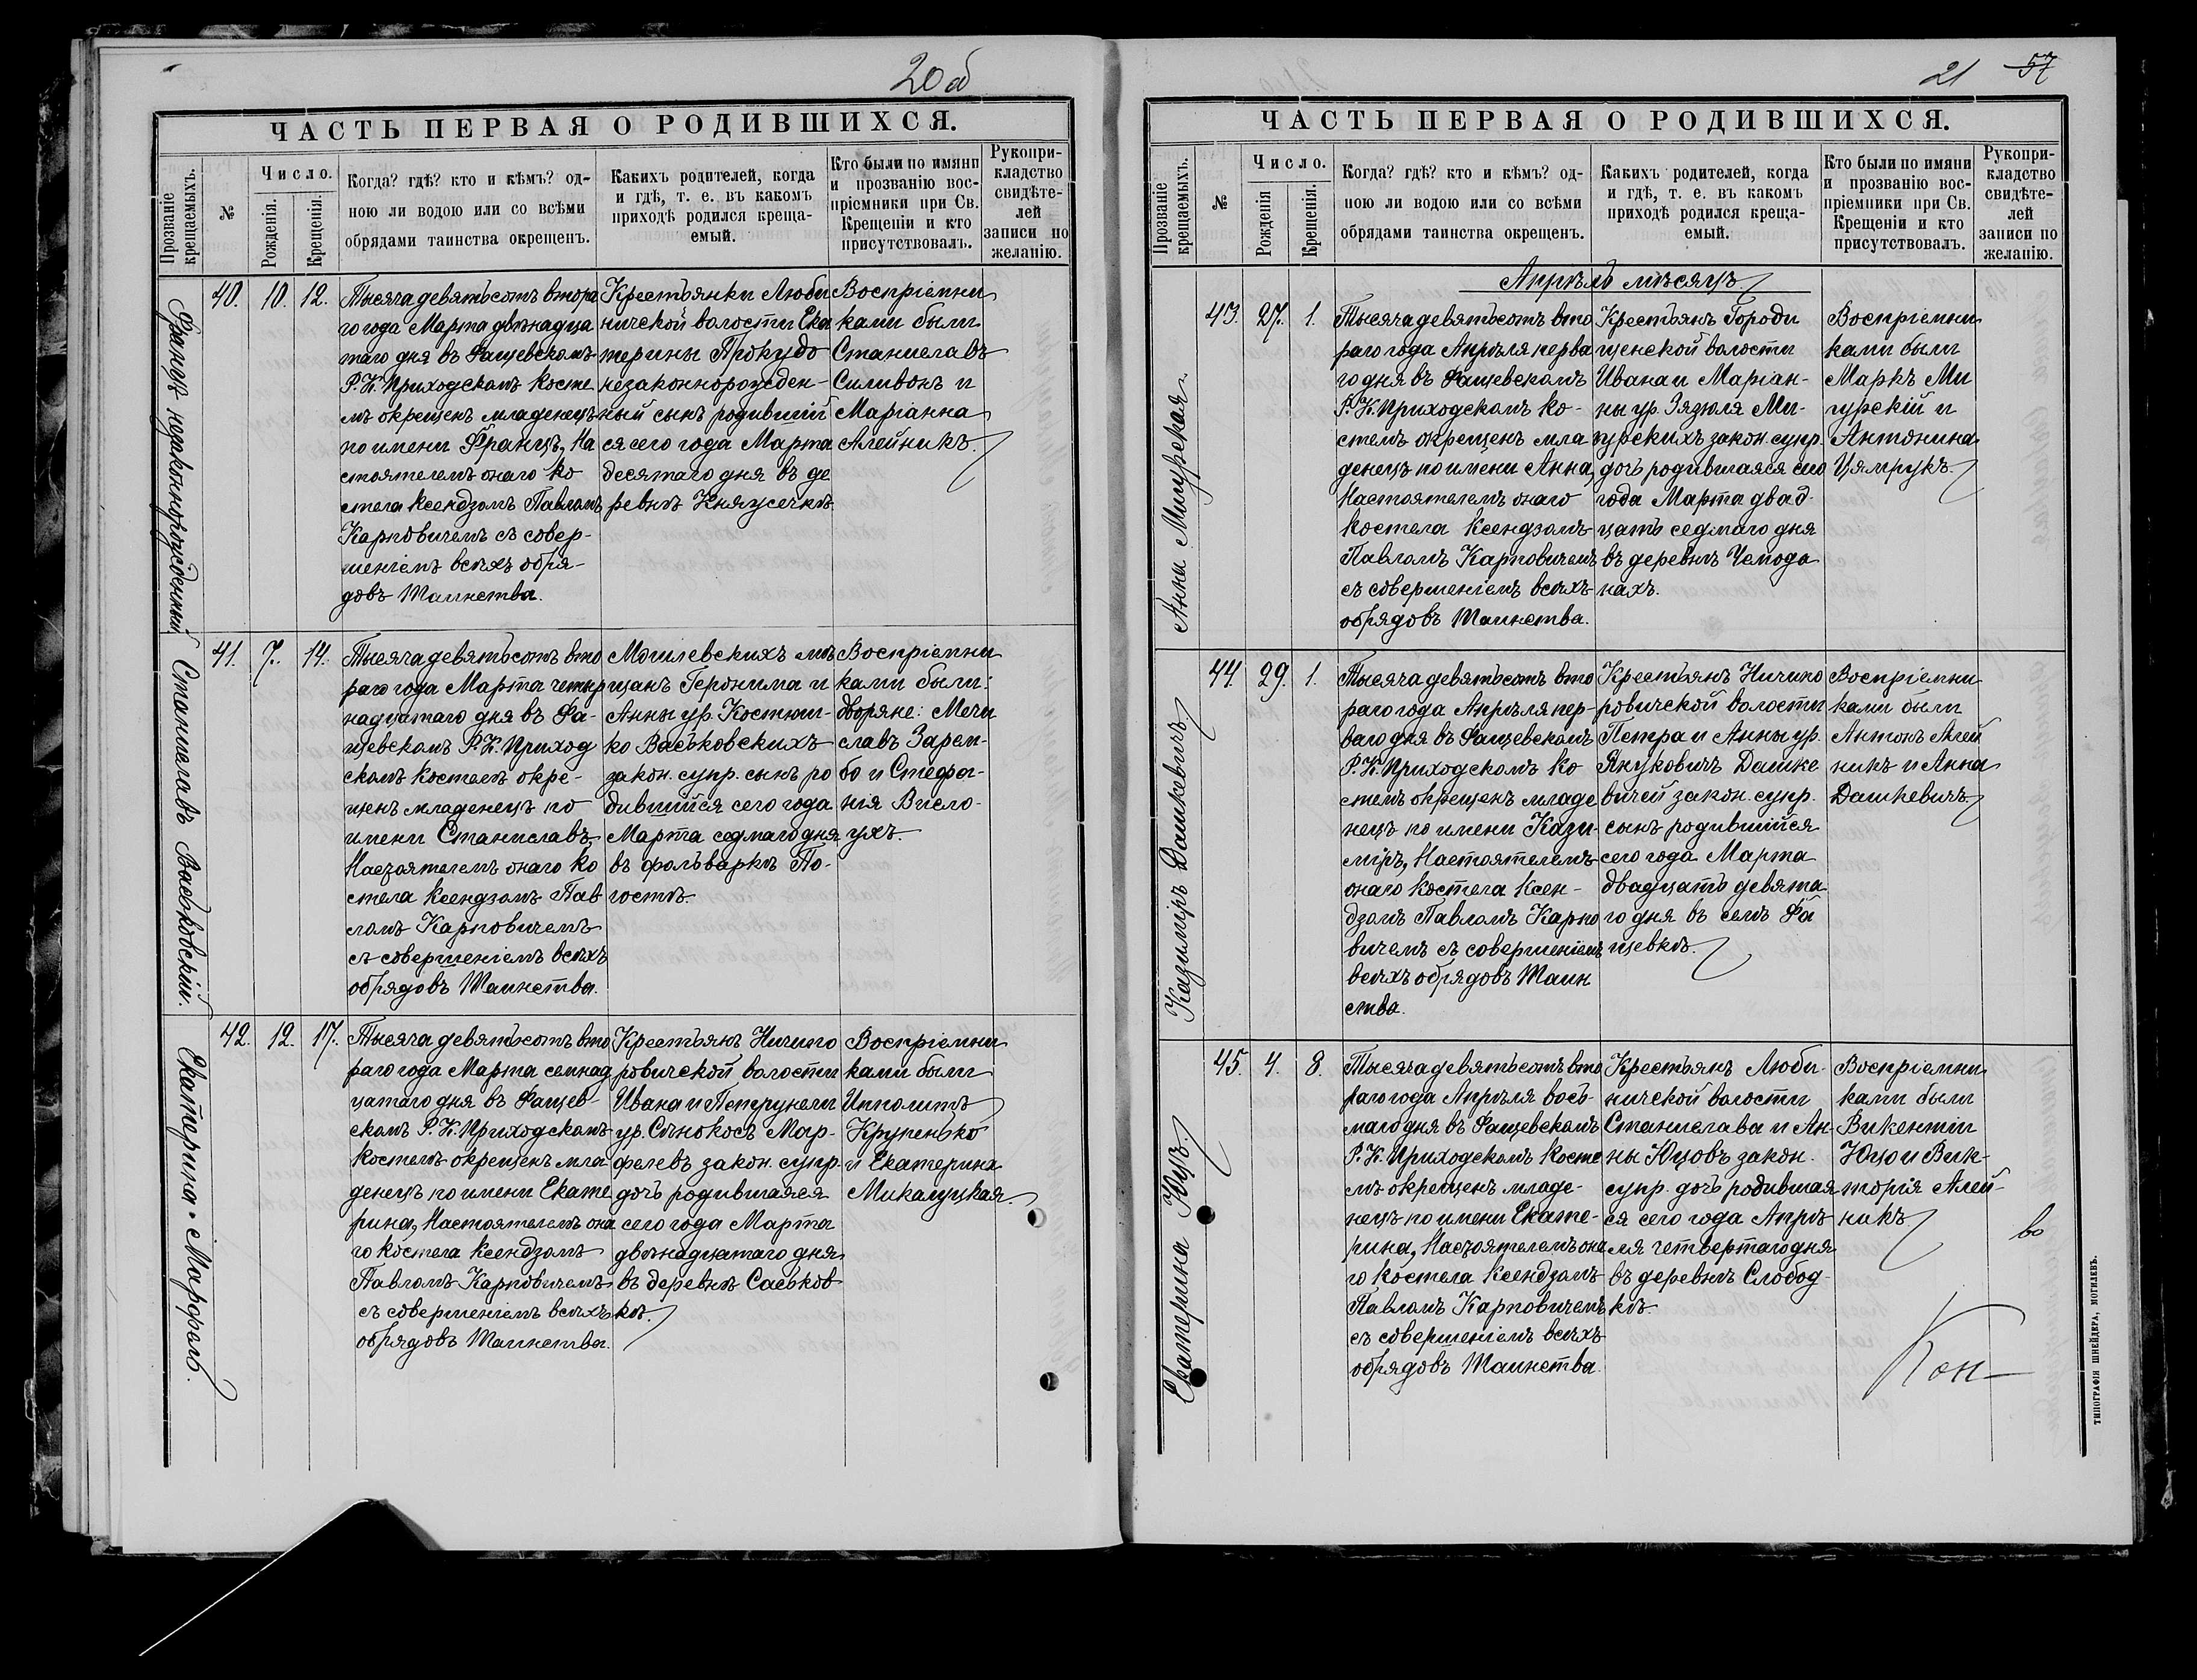 20 об
ЧАСТЬ ПЕРВАЯ О РОДИВШИХСЯ.
Прозваніе крещаемыхъ.
№
Число.
Рожденія.
Крещенія.
Когда? гдѣ? кто и кѣмъ? од-
ною ли водою или со всѣми
обрядами таинства окрещенъ.
Какихъ родителей, когда
и гдѣ, т. е. въ какомъ
приходѣ родился креща-
емый.
Кто были по имяни
и прозванію вос-
пріемники при Св.
Крещеніи и кто
присутствовалъ.
Рукопри-
кладство
свидѣте-
лей
записи по
желанію.
Францъ незаконнорожденный
40. 10. 12.
Тысяча девятьсотъ втора
го года Марта двѣнадца
таго дня въ Фащевскомъ
Р. К. Приходскомъ косте
лѣ окрещенъ младенецъ
по имени Францъ, На
стоятелемъ онаго ко
стела Ксендзомъ Павломъ
Карповичемъ съ совер-
шеніемъ всѣхъ обря-
довъ Таинства.
Крестьянки Люби
ничской волости Ека
терины Прокудо
незаконнорожден-
ный сынъ родившій
ся сего года Марта
десятаго дня въ де
ревнѣ Княжечкѣ
Воспріемни
ками были
Станиславъ
Силивонъ и
Маріанна
Алейникъ.
Станиславъ Васьковскій.
41. 7. 14.
Тысяча девятьсотъ вто
раго года Марта четыр
надцатаго дня въ Фа-
щевскомъ Р. К. Приход
скомъ костелѣ окре-
щенъ младенецъ по
имени Станиславъ,
Настоятелемъ онаго ко
стела Ксендзомъ Пав
ломъ Карповичемъ
съ совершеніемъ всѣхъ
обрядовъ Таинства.
Могилевскихъ мѣ
щанъ Геронима и
Анны ур. Костюш-
ко Васьковскихъ
закон. супр. сынъ ро
дившійся сего года
Марта седмаго дня
въ фольваркѣ По-
гостѣ.
Воспріемни
ками были:
дворяне: Мечи
славъ Зарем-
бо и Стефа-
нія Висло-
ухъ.
Екатерина Марфель.
42. 12. 17.
Тысяча девятьсотъ вто
раго года Марта семнад
цатаго дня въ Фащев-
скомъ Р. К. Приходскомъ
костелѣ окрещенъ мла
денецъ по имени Екате
рина, Настоятелемъ она
го костела Ксендзомъ
Павломъ Карповичемъ
съ совершеніемъ всѣхъ
обрядовъ Таинства.
Крестьянъ Ничипо
ровичской волости
Ивана и Петрунели
ур. Сѣнокосъ Мар-
фелевъ закон. супр.
дочь родившаяся
сего года Марта
двѣнадцатаго дня
въ деревнѣ Саськов
кѣ.
Воспріемни
ками были
Ипполитъ
Крупенько
и Екатерина
Микалуцкая.
21 57
ЧАСТЬ ПЕРВАЯ О РОДИВШИХСЯ.
Прозваніе крещаемыхъ.
№
Число.
Рожденія
Крещенія.
Когда? гдѣ? кто и кѣмъ? од-
ною ли водою или со всѣми
обрядами таинства окрещенъ.
Какихъ родителей, когда
и гдѣ, т. е. въ какомъ
приходѣ родился креща-
емый.
Кто были по имяни
и прозванію вос-
пріемники при Св.
Крещеніи и кто
присутствовалъ.
Рукопри-
кладство
свидѣте-
лей
записи по
желанію.
Апрѣль мѣсяцъ
Анна Мигурская
43. 27. 1.
Тысяча девятьсотъ вто
раго года Апрѣля перва
го дня въ Фащевскомъ
Р. К. Приходскомъ ко-
стелѣ окрещенъ мла
денецъ по имени Анна,
Настоятелемъ онаго
костела Ксендзомъ
Павломъ Карповичемъ
съ совершеніемъ всѣхъ
обрядовъ Таинства.
Крестьянъ Городи
щенской волости
Ивана и Маріан-
ны ур. Зязюля Ми-
гурскихъ закон. супр.
дочь родившаяся сего
года Марта двад-
цать седмаго дня
въ деревнѣ Чемода
нахъ.
Воспріемни
ками были
Маркъ Ми
гурскій и
Антонина
Цямрукъ.
Казиміръ Дашкевичъ
44. 29. 1.
Тысяча девятьсотъ вто
раго года Апрѣля пер-
ваго дня въ Фащевскомъ
Р. К. Приходскомъ ко
стелѣ окрещенъ младе
нецъ по имени Кази-
міръ, Настоятелемъ
онаго костела Ксен-
дзомъ Павломъ Карпо
вичемъ съ совершеніемъ
всѣхъ обрядовъ Таин
ства.
Крестьянъ Ничипо
ровичской волости
Петра и Анны ур.
Януковичъ Дашке
вичей закон. супр.
сынъ родившійся
сего года Марта
двадцать девята
го дня въ селѣ Фа
щевкѣ.
Воспріемни
ками были
Антонъ Алей
никъ и Анна
Дашкевичъ.
Екатерина Юцъ.
45. 4. 8.
Тысяча девятьсотъ вто
раго года Апрѣля вось-
маго дня въ Фащевскомъ
Р. К. Приходскомъ косте
лѣ окрещенъ младе-
нецъ по имени Екате-
рина, Настоятелемъ она
го костела Ксендзомъ
Павломъ Карповичемъ
съ совершеніемъ всѣхъ
обрядовъ Таинства.
Крестьянъ Люби-
ничской волости
Станислава и Ан-
ны Юцовъ закон.
супр. дочь родившая
ся сего года Апрѣ
ля четвертаго дня
въ деревнѣ Слобод-
кѣ.
Воспріемни
ками были
Викентій
Юцо и Вик-
торія Алей-
никъ
во
Кон-
ТИПОГРАФІЯ ШНЕЙДЕРА, МОГИЛЕВЪ.